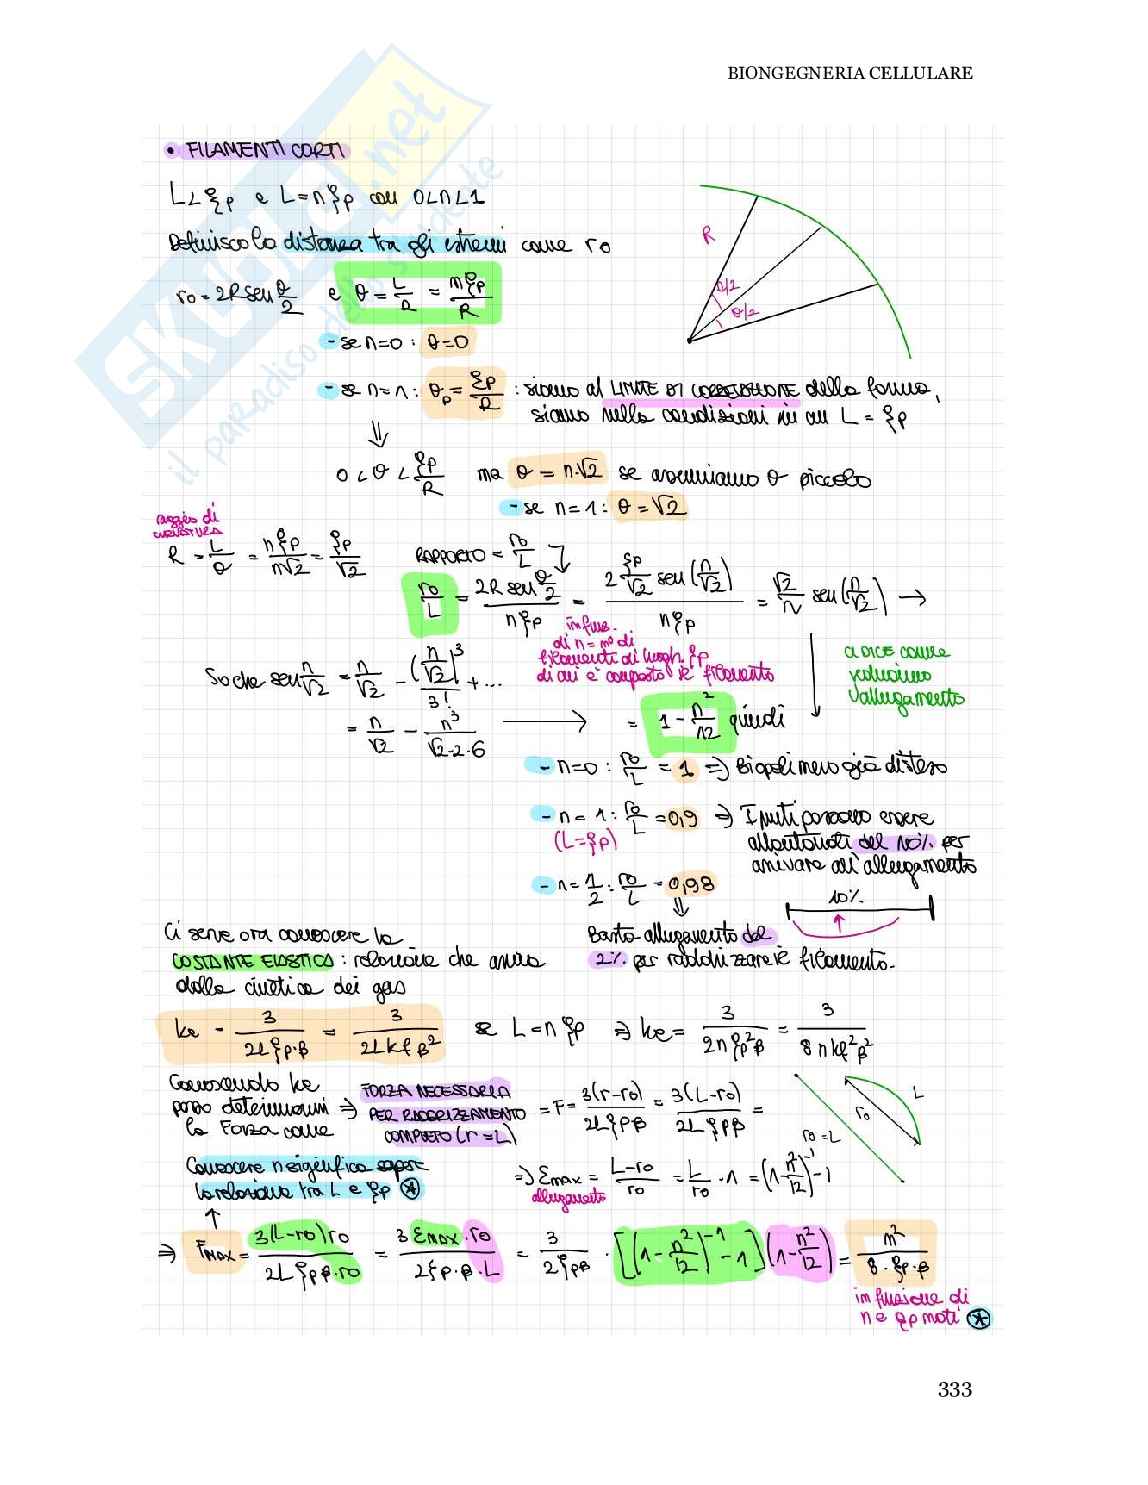 BIONGEGNERIA CELLULARE
SKUOLA.net
il paradiso dello studente
• FILAMENTI CORTI
L < ξp e L = n ξp con 0 < n < 1
Definisco la distanza tra gli estremi come r0
r0 = 2R sen θ/2 e θ = L/R = nξp/R
- se n=0 : θ=0
- se n=1 : θp = ξp/R : siamo al LIMITE DI CORRELAZIONE della forma,
siamo nelle condizioni in cui L = ξp
R
θ/2
θ/2
⇓
0 < θ < ξp/R ma θ = n·√2 se assumiamo θ piccolo
- se n = 1 : θ = √2
raggio di
curvatura
R = L/θ = nξp/n√2 = ξp/√2 RAPPORTO = r0/L
r0/L = 2R sen θ/2 / nξp = 2 ξp/√2 sen(n/√2) / nξp = √2/n sen(n/√2) →
in funz.
di n = n° di
filamenti di lungh. ξp
di cui è composto il filamento
a dice come
valutiamo
l'allungamento
So che sen n/√2 = n/√2 - (n/√2)³/3! + ...
= n/√2 - n³/√2·2·6 → = 1 - n²/12 quindi
- n=0 : r0/L = 1 ⇒ Biopolimero già disteso
- n = 1 : r0/L = 0,9 ⇒ I punti possono essere
(L=ξp) allontanati del 10% per
arrivare all'allungamento
- n = 1/2 : r0/L = 0,98
10%
⇓
Basta allungamento del
2% per raddrizzare il filamento.
Ci serve ora conoscere la
COSTANTE ELASTICA : relazione che arriva
dalla cinetica dei gas
ke = 3/2Lξp·β = 3/2Lkfβ² se L = n ξp ⇒ ke = 3/2nξp²β = 3/8nkf²β²
Conoscendo ke
posso determinarmi ⇒
la Forza come
FORZA NECESSARIA
PER RADDRIZZAMENTO
COMPLETO (r = L)
= F = 3(r-r0)/2Lξpβ = 3(L-r0)/2Lξpβ =
L
r0
r0 = L
Conoscere n significa sapere
la relazione tra L e ξp ⊛
⇒ εmax = L-r0/r0 = L/r0 - 1 = (1-n²/12)⁻¹ - 1
allungamento
⇒ FMAX = 3(L-r0)r0/2Lξpβ·r0 = 3 εMAX·r0/2ξp·β·L = 3/2ξpβ · [(1-n²/12)⁻¹ - 1](1-n²/12) = n²/8·ξp·β
in funzione di
n e ξp noti ⊛
333